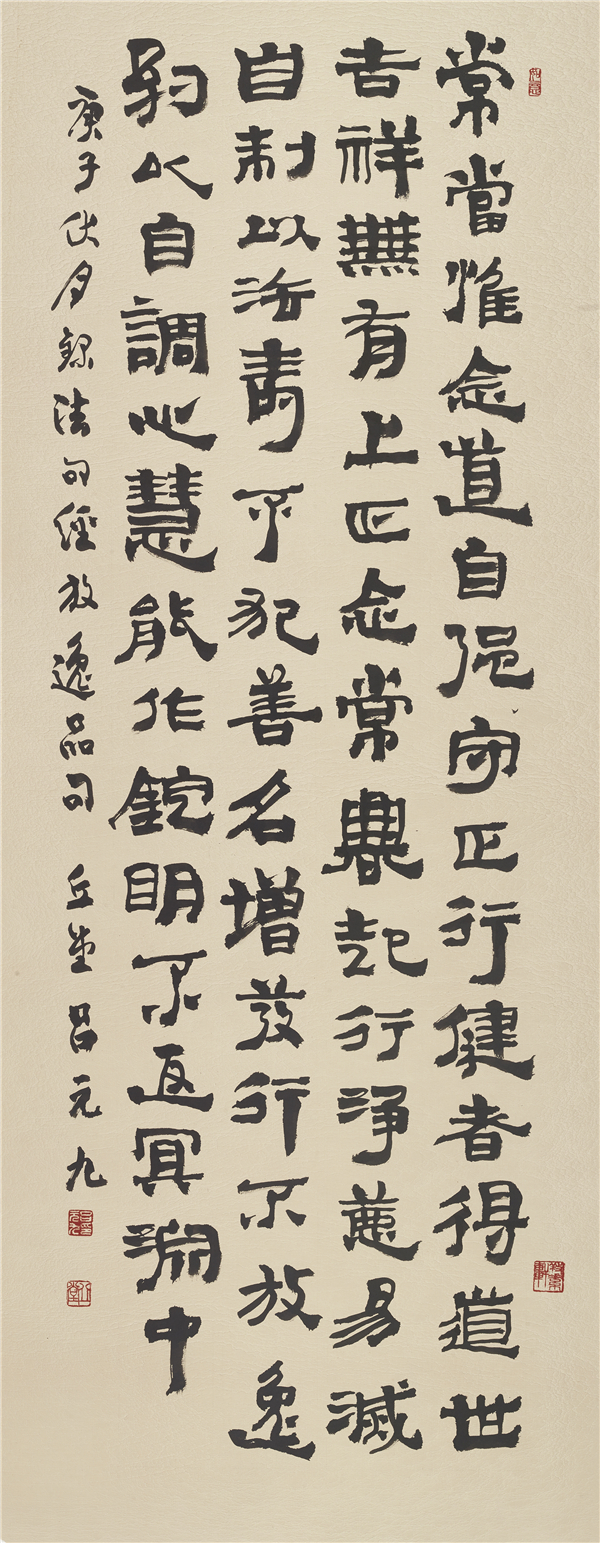 常當惟念道自強守正行健者得道世
吉祥無有上正念常興起行淨惡易滅
自制以法壽不犯善名增發行不放逸
約以自調心慧能作錠明不返冥淵中
庚子伏月錄法句經放逸品句 丘堂 呂元九